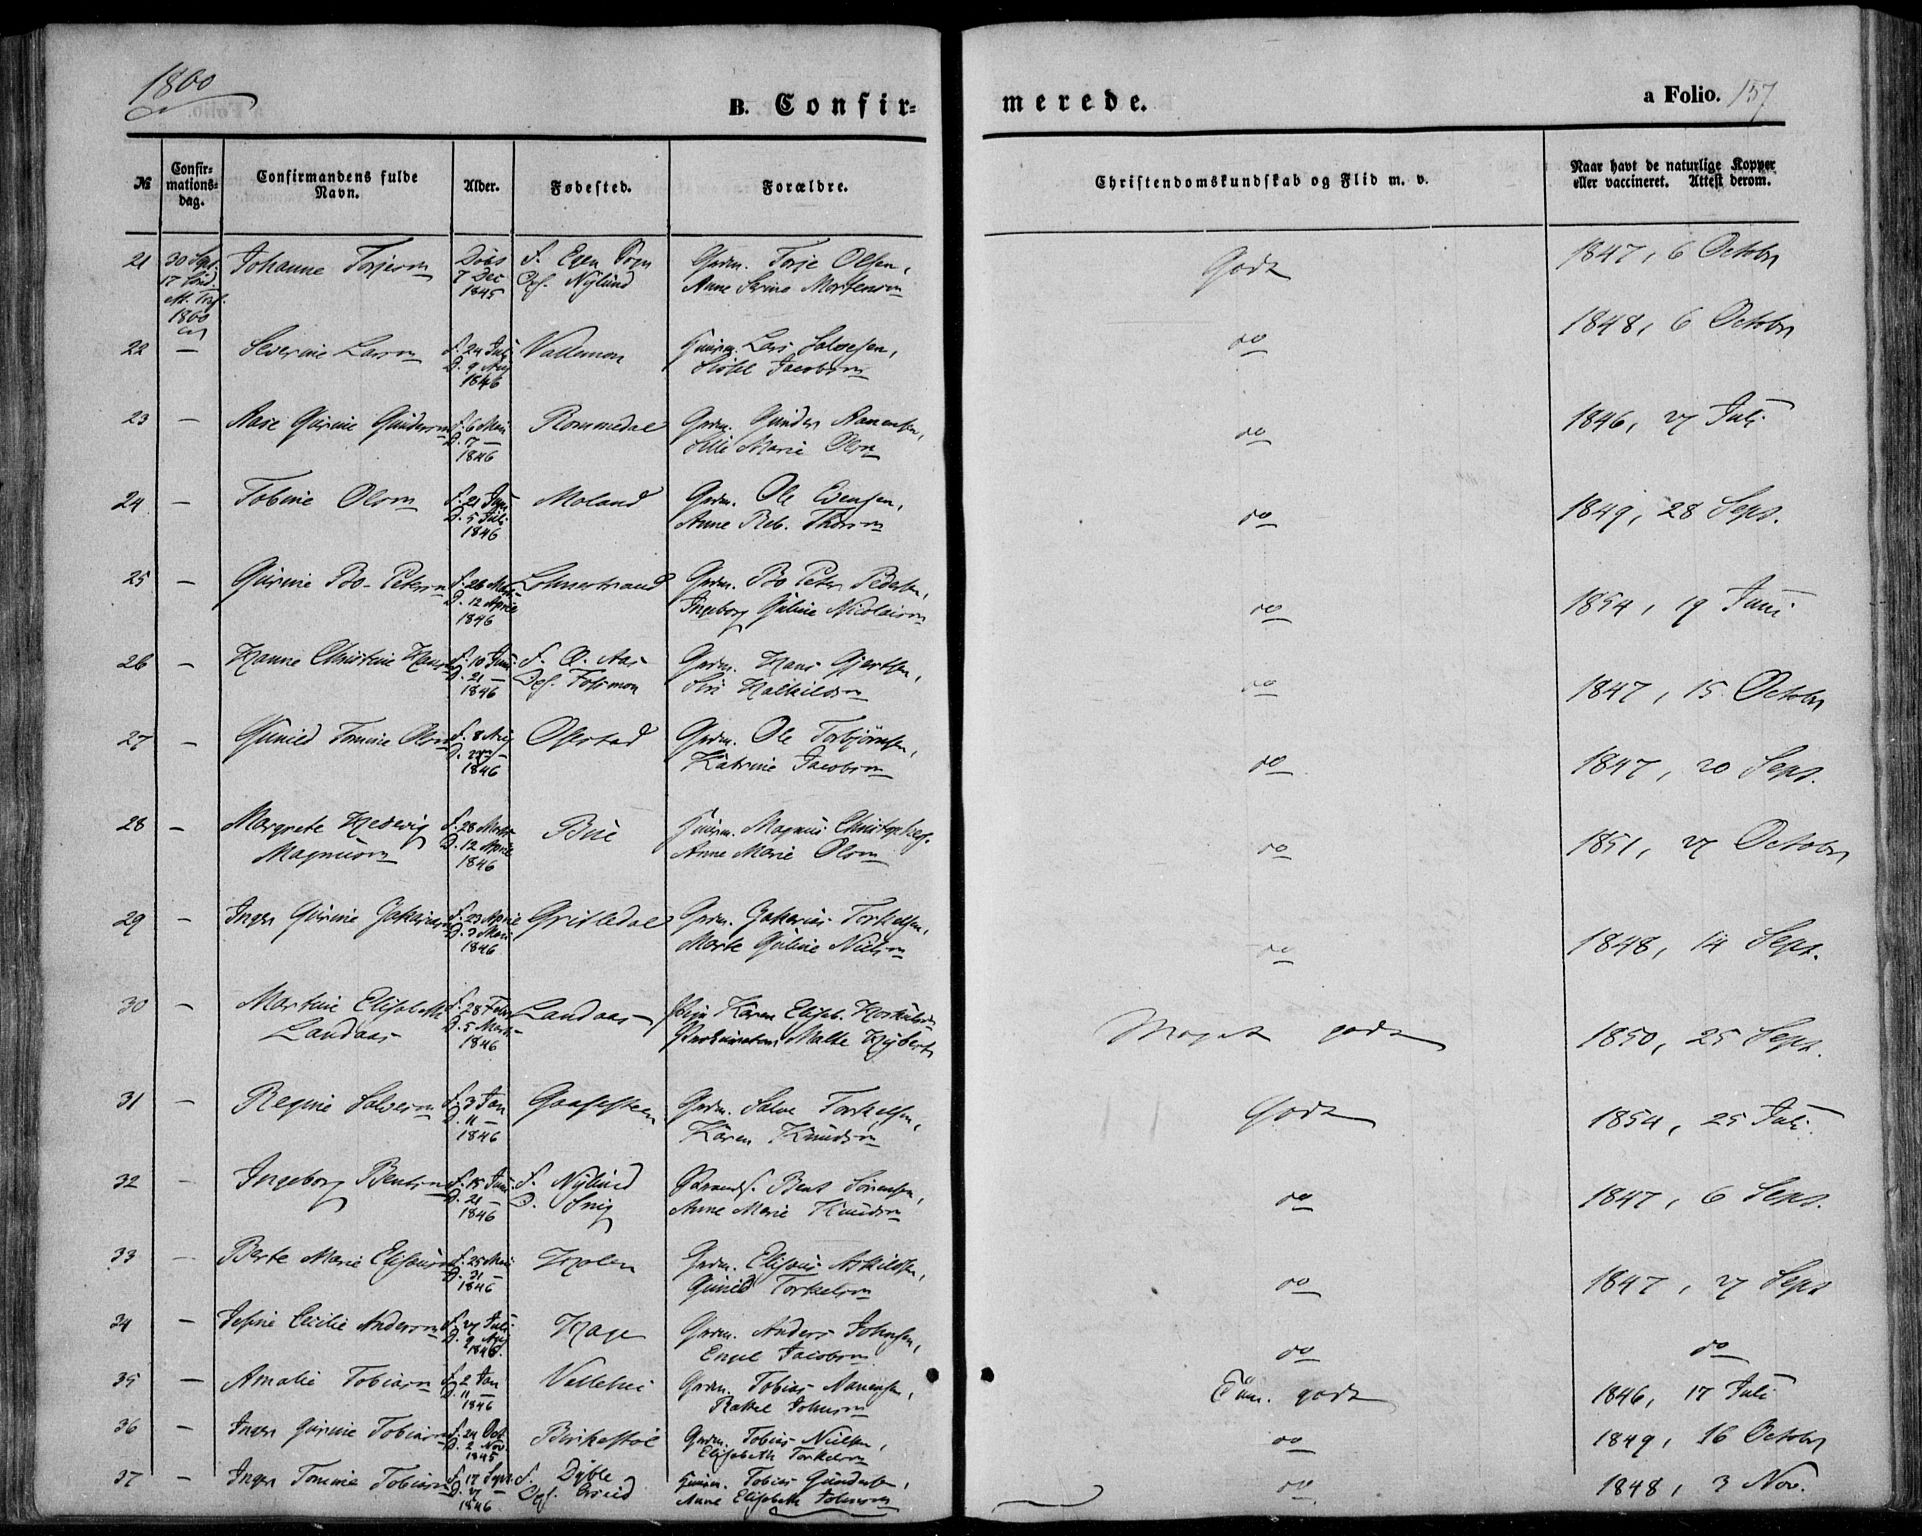 1860
B. Confirmerede.
a Folio. 157
№
Confirmations-dag.
Confirmandens fulde Navn.
Alder.
Fødested.
Forældre.
Christendomskundskab og Flid m. v.
Naar havt de naturlige Kopper eller vaccineret. Attest derom.
21 30 Sept. 17 Sønd. 1860 Johanne Torjesen Døbt 7 Dec 1845 f. Egen Sogn Opf. Nylund Grdm. Torje Olsen, Anne Serine Mortensen Godt 1847, 6 Octobr
22 — Severine Larsen f. 24 Juli D. 9 Aug 1846 Vallemon Huusm. Lars Salvesen, Jacobsen do 1848, 6 Octobr
23 — Aase Gurine Gundersen f. 6 Mai D. 7 — 1846 Rommedal Grdm. Gunder Aanensen, Silli Marie Olsen do 1846, 27 Juli
24 — Tobine Olsen f. 21 Juni D. 5 Juli 1846 Moland Grdm. Ole Evensen, Anne Reb. Thorsen do 1849, 28 Sept.
25 — Gurine Bo-Petersen f. 26 Marts D. 12 April 1846 Lohnestrand Grdm. Bo Peter Pedersen, Ingeborg Guline Nicolaisen do 1854, 19 Juni
26 — Hanne Christine Hansen f. 10 Juni D. 21 — 1846 f. O. Aas Opf. Grdm. Hans Gjertsen, Siri do 1847, 15 Octobr
27 — Gunild Tomine Olsen f. 8 Aug D. 1846 Ofstad Grdm. Ole Torbjørnsen, Katrine Jacobsen do 1847, 20 Sept.
28 — Margrete Hedevig Magnusen f. 28 Marts D. 12 April 1846 Bue Huusm. Magnus Anne Marie Olsen do 1851, 27 Octobr
29 — Inger Gurine f. 23 April D. 3 Mai 1846 Gristedal Grdm. Zakarias Torkelsen, Marte Guline Nielsen do 1848, 14 Sept.
30 — Martine Elisabeth Landaas f. 28 Febr D. 5 Marts 1846 Landaas Pige Karen Elisab. Malte Meget godt 1850, 25 Sept.
31 — Regine Salvesen f. 3 Jan D. 11 — 1846 Gaaseflaa Grdm. Salve Torkelsen, Karen Knudsen Godt 1854, 25 Juli
32 — Ingeborg Bentsen f. 15 Juni D. 21 — 1846 f. Nylund D. Snig Bent Sørensen, Anne Marie Knudsen do 1847, 6 Sept.
33 — Berte Marie Elisæusen f. 25 Mai D. 31 — 1846 Holen Grdm. Elisæus Askildsen, Gunild Torkelsen do 1847, 27 Sept
34 — Josine Cecilie Andersen f. 27 Juli D. 9 Aug 1846. Hage Grdm. Anders Johnsen, Engel Jacobsen do do
35 — Amalie Tobiasen f. 2 Jan D. 11 — 1846 Vellehei Grdm. Tobias Aanensen, Rakel Johnsen Tem. godt 1846, 17 Juli
36 — Inger Gurine Tobiasen f. 24 Oct D. 2 Nov 1845 Birkestøl Grdm. Tobias Nielsen, Elisabeth Torkelsen do 1849, 16 Octobr
37 — Inger Tomine Tobiasen f. 17 Sept. D. 27 — 1846 f. Dyble Opf. Huusm. Tobias Gundersen, Anne Elisabeth Johnsen do 1848, 3 Nov.